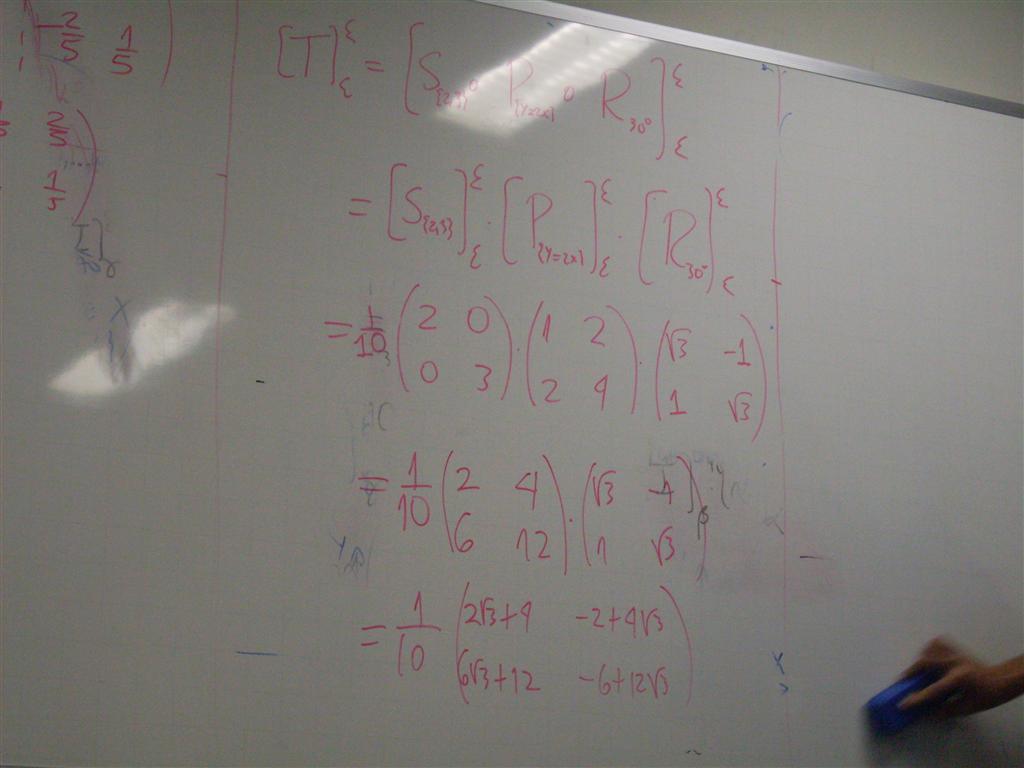 -2/5 1/5
2/5
1/5
[T]^ε_ε = [S_{2,3} ∘ P_{y=2x} ∘ R_30°]^ε_ε
= [S_{2,3}]^ε_ε · [P_{y=2x}]^ε_ε · [R_30°]^ε_ε
= 1/10 (2 0; 0 3) · (1 2; 2 4) · (√3 -1; 1 √3)
= 1/10 (2 4; 6 12) · (√3 -1; 1 √3)
= 1/10 (2√3+4 -2+4√3; 6√3+12 -6+12√3)